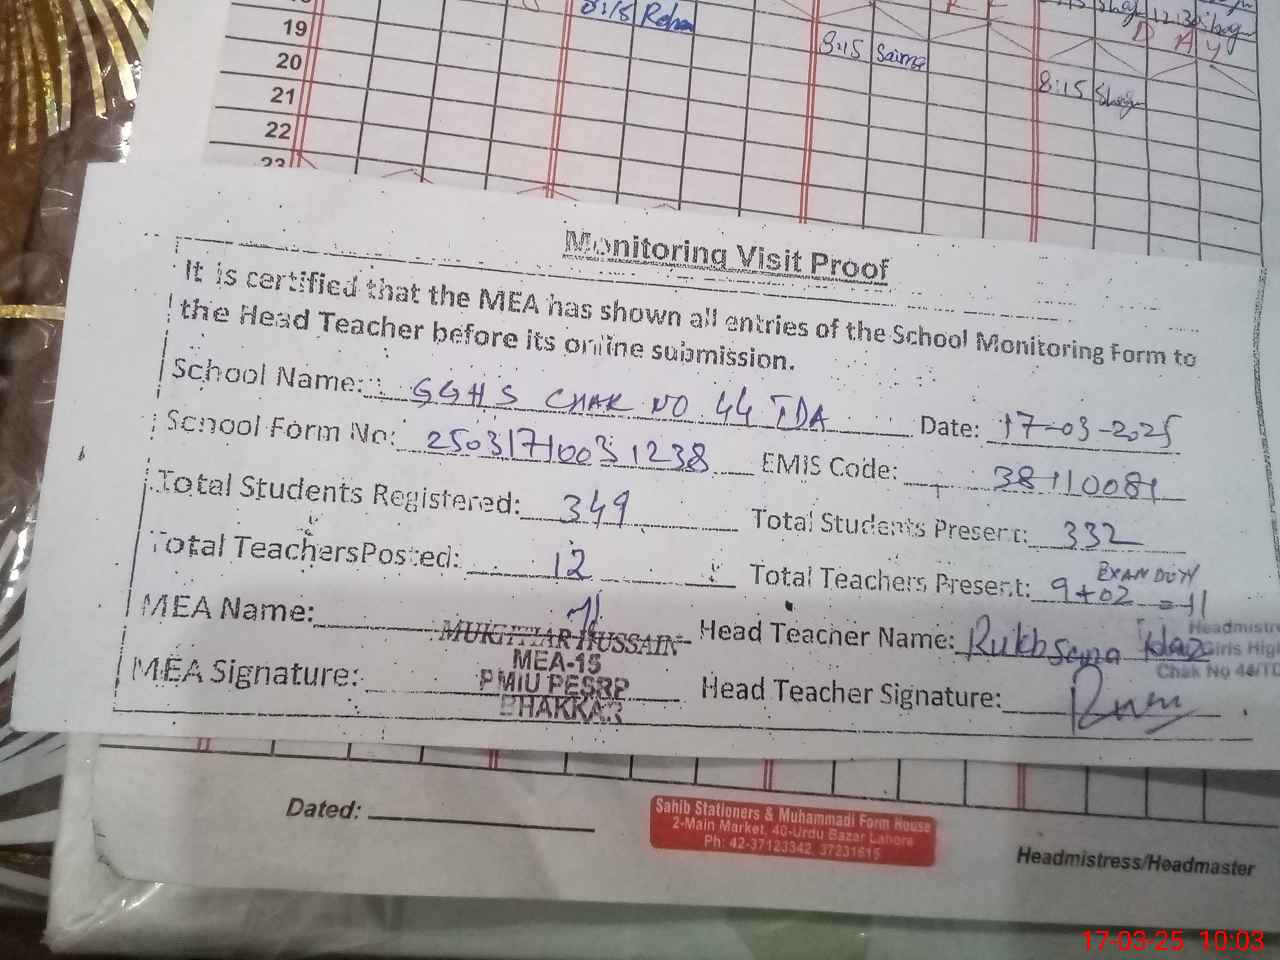 19
8:15 Saima
20
8:15
21
22
23
Monitoring Visit Proof
It is certified that the MEA has shown all entries of the School Monitoring Form to
the Head Teacher before its online submission.
School Name: GGHS CHAK NO 44 TDA Date: 17-03-2025
School Form No: 25031710031238 EMIS Code: 38110081
Total Students Registered: 349 Total Students Present: 332
Total Teachers Posted: 12 Total Teachers Present: 9+02 =11
EXAM DUTY
MEA Name: MUKHTIAR HUSSAIN Head Teacher Name: Rukhsana
MEA-15
PMIU PESRP
BHAKKAR
Headmistre
Girls High
Chak No 44/TD
MEA Signature: Head Teacher Signature:
Dated:
Sahib Stationers & Muhammadi Form House
2-Main Market, 40-Urdu Bazar Lahore
Ph: 42-37123342, 37231615
Headmistress/Headmaster
17-03-25 10:03